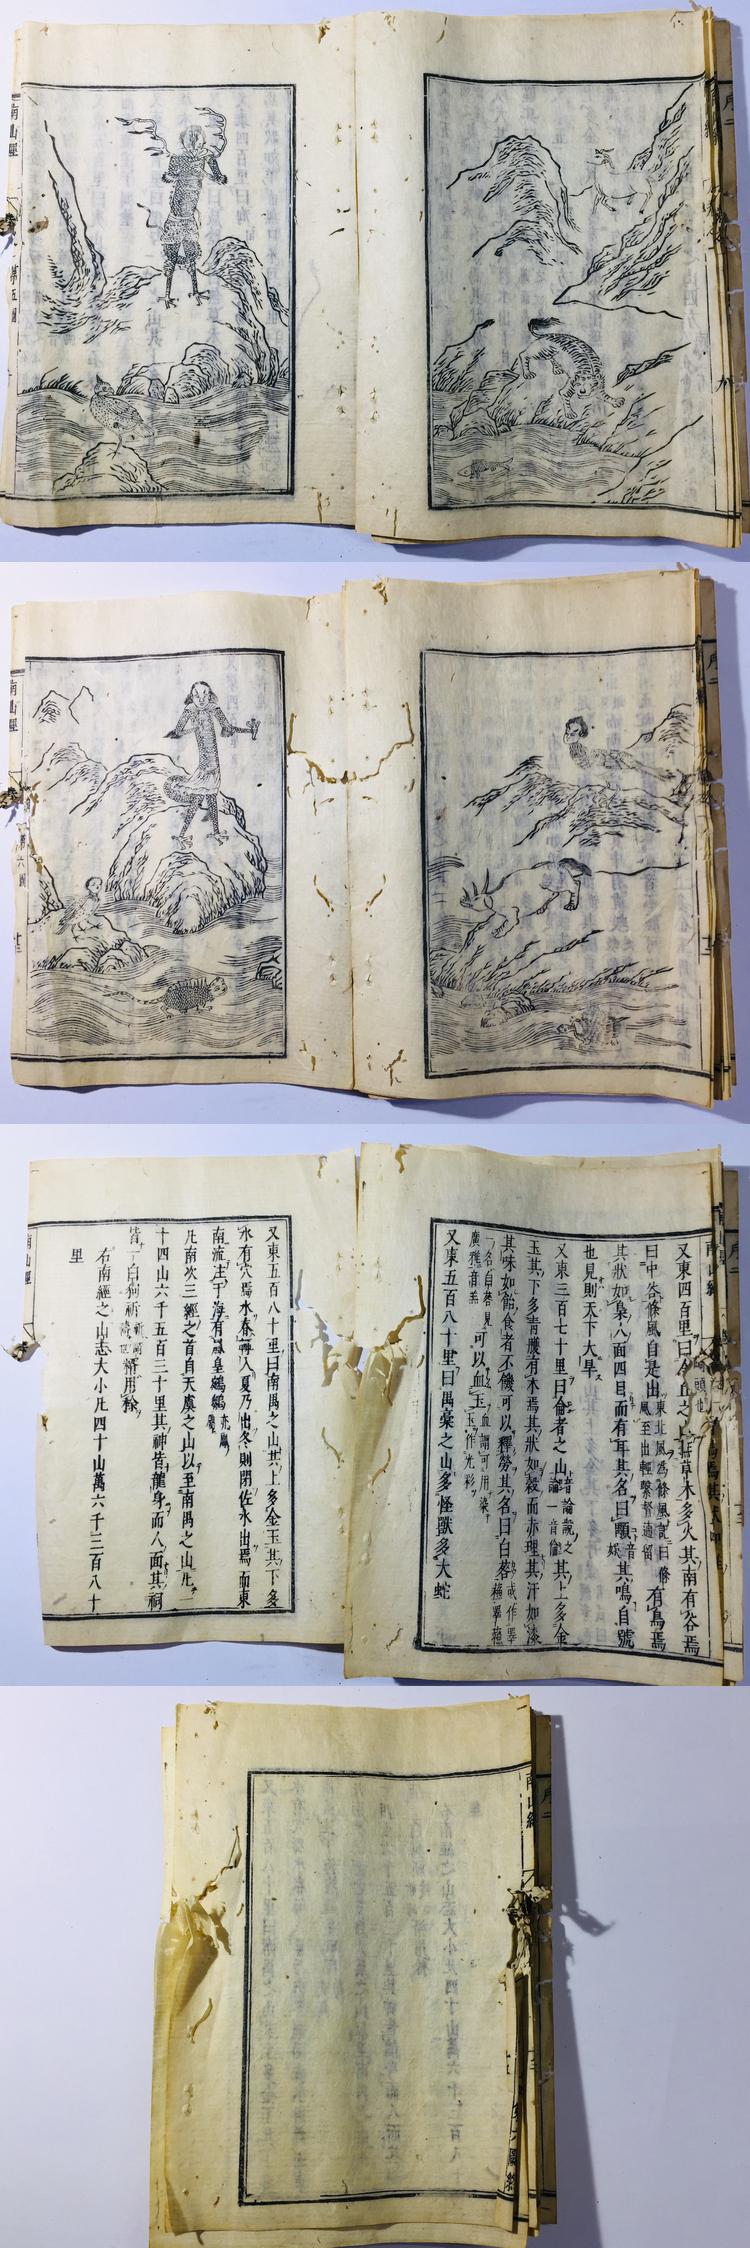 南山經
第五圖
南山經
第六圖
又東四百里曰令丘之山無草木多火其南有谷焉
曰中谷條風自是出東北風爲條風記曰條風至出輕繫督逋留有鳥焉
其狀如梟人面四目而有耳其名曰顒音其鳴自號
也見則天下大旱
又東三百七十里曰侖者之山音論說之論一音倫其上多金
玉其下多青雘有木焉其狀如穀而赤理其汗如漆
其味如飴食者不饑可以釋勞其名曰白䓘或作睪蘇
可以血玉血謂可用染玉作光彩
又東五百八十里曰禺稾之山多怪獸多大蛇
又東五百八十里曰南禺之山其上多金玉其下多
水有穴焉水春輒入夏乃出冬則閉佐水出焉而東
南流注于海有鳳皇鵷鶵亦鳳屬
凡南次三經之首自天虞之山以至南禺之山凡一
十四山六千五百三十里其神皆龍身而人面其祠
皆一白狗祈糈用稌
右南經之山志大小凡四十山萬六千三百八十
里
南山經